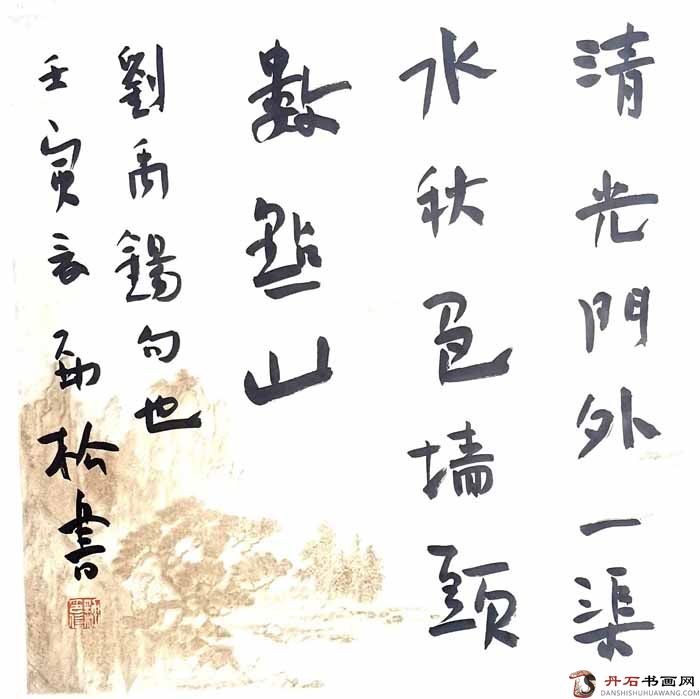 清光門外一渠
水秋色墙頭
數點山
劉禹錫句也
壬寅 勁松書
丹石书画网
DANSHISHUHUAWANG.COM